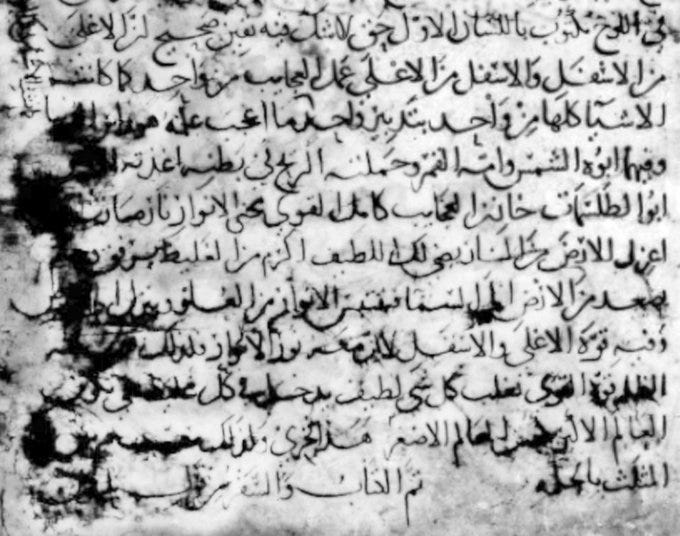 في اللوح مكتوب باللسان الاول حق لا شك فيه يقين صحيح ان الاعلى
من الاسفل والاسفل من الاعلى عمل العجايب من واحد كما كانت
الاشيا كلها من واحد بتدبير واحد ما اعجب عمله
وقيمها ابوه الشمس وامه القمر وحملته الريح في بطنه اغذته
ابو الطلسمات خازن العجايب كامل القوى محيي الانوار نار صارت
اعزل الارض من النار يضي لك اللطيف اكرم من الغليظ برفق
يصعد من الارض الى السما فيقتبس الانوار من العلو وينزل
وفيه قوة الاعلى والاسفل لان معه نور الانوار فلذلك
قوة القوى تغلب كل شي لطيف يدخل في كل غليظ
العالم الاكبر العالم الاصغر هذا فخري ولذلك
المثلث بالحكمة تم الكتاب